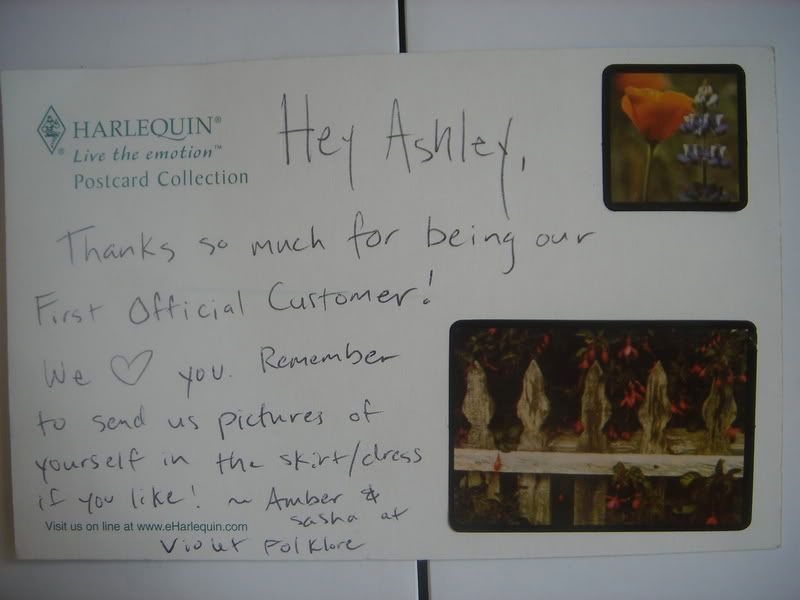 HARLEQUIN®
Live the emotion™
Postcard Collection
Hey Ashley,
Thanks so much for being our
First Official Customer!
We ♡ you. Remember
to send us pictures of
yourself in the skirt/dress
if you like! ~ Amber &
Sasha at
Violet Folklore
Visit us on line at www.eHarlequin.com